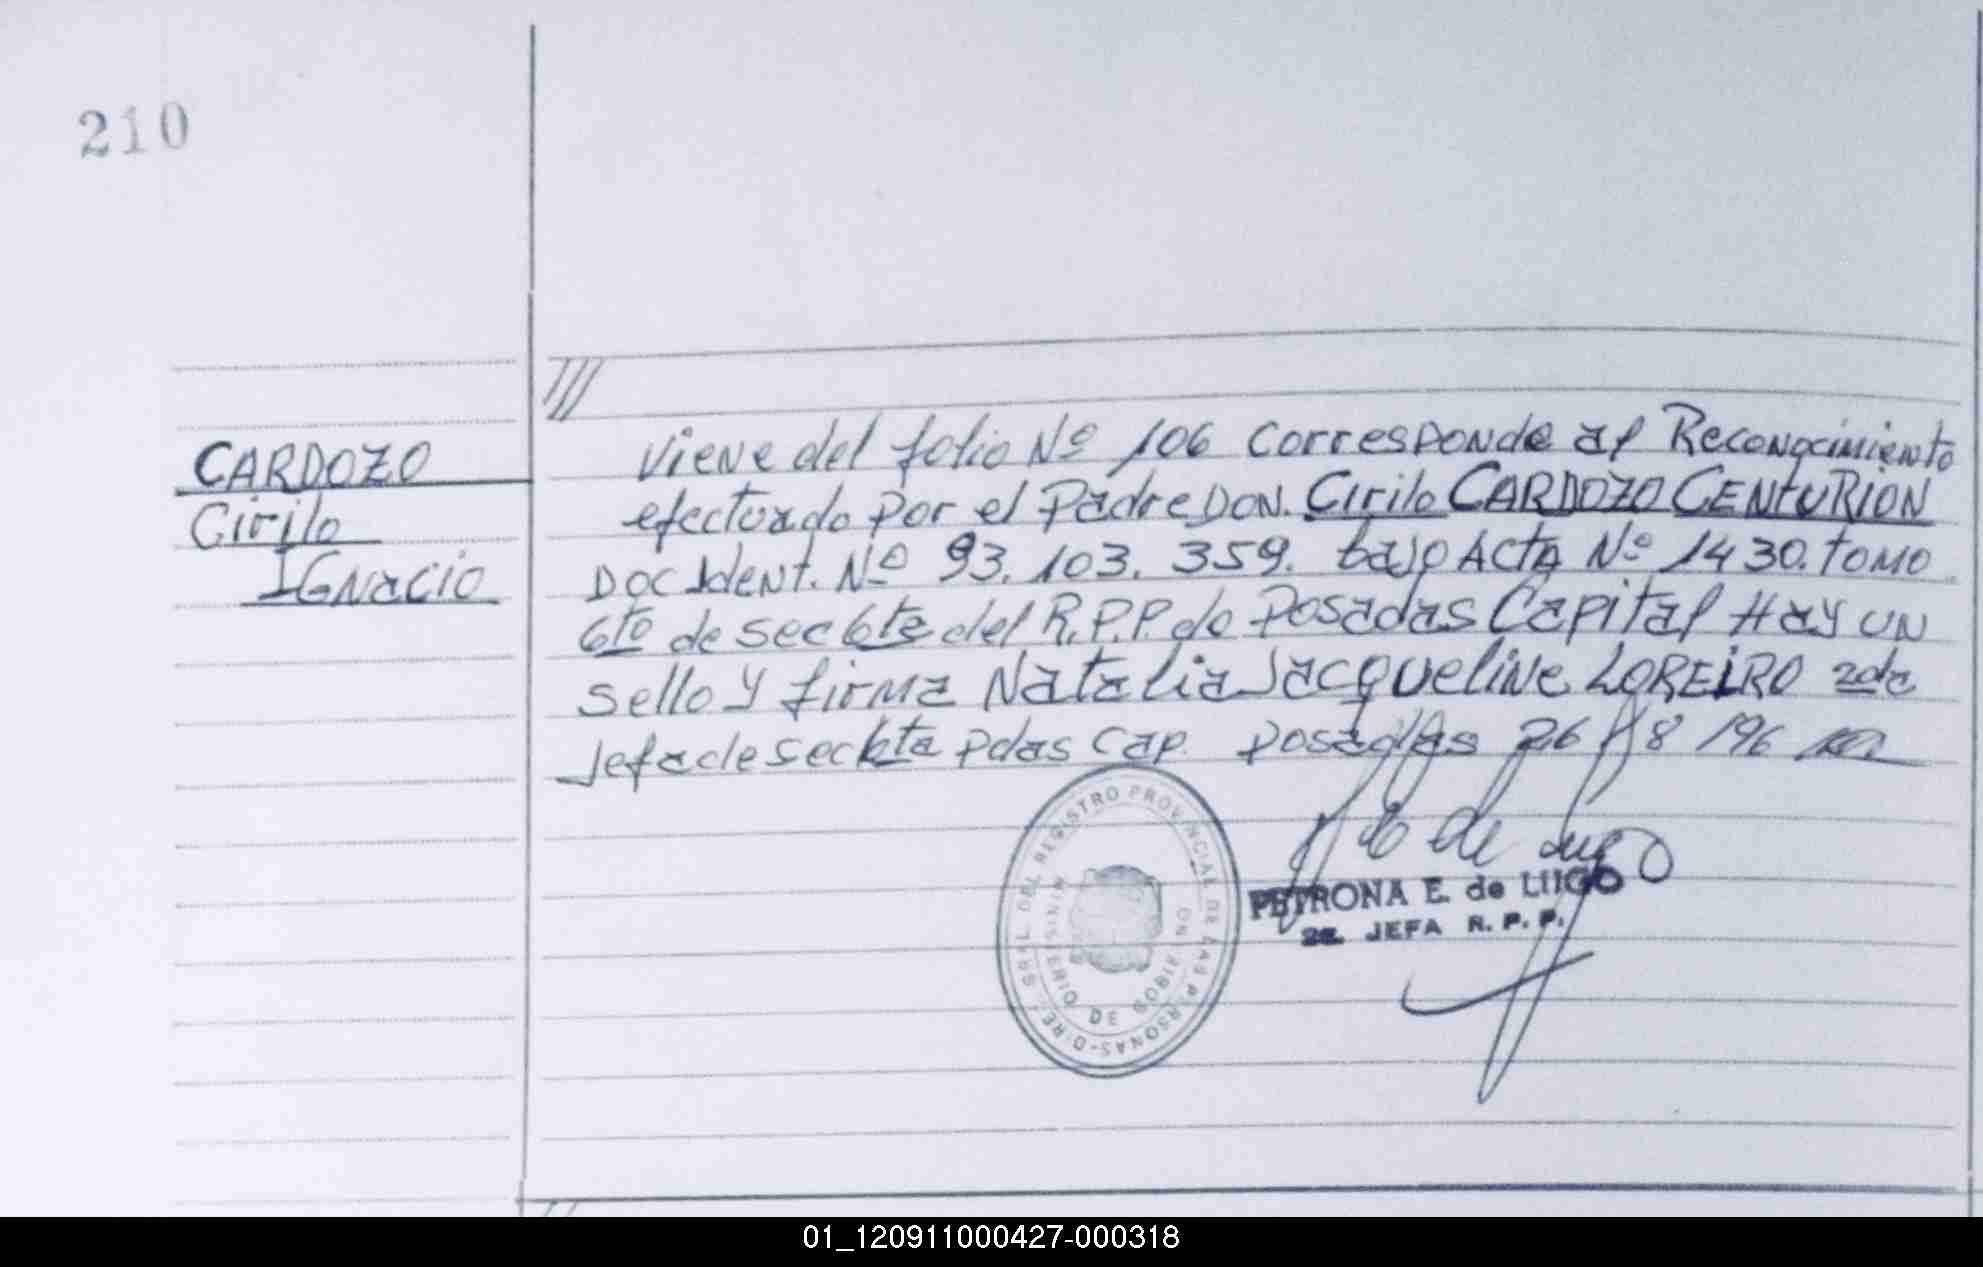 210
///
CARDOZO
Cirilo
IGNacio
Viene del folio Nº 106 corresponde al Reconocimiento
efectuado por el Padre DON. Cirilo CARDOZO CENTURION
DOC Ident. Nº 93.103.359. bajo ACTA Nº 1430. TOMO
6to de sec 6ta del R.P.P. de Posadas Capital Hay UN
sello y firma Natalia Jacqueline LOREIRO 2da
Jefa de sec 6ta Pdas Cap. Posadas 26/8/96
DIREC. GRAL. DEL REGISTRO PROVINCIAL DE LAS PERSONAS
MINISTERIO DE GOBIERNO
de Lugo
PETRONA E. de LUGO
2a. JEFA R. P. P.
01_120911000427-000318